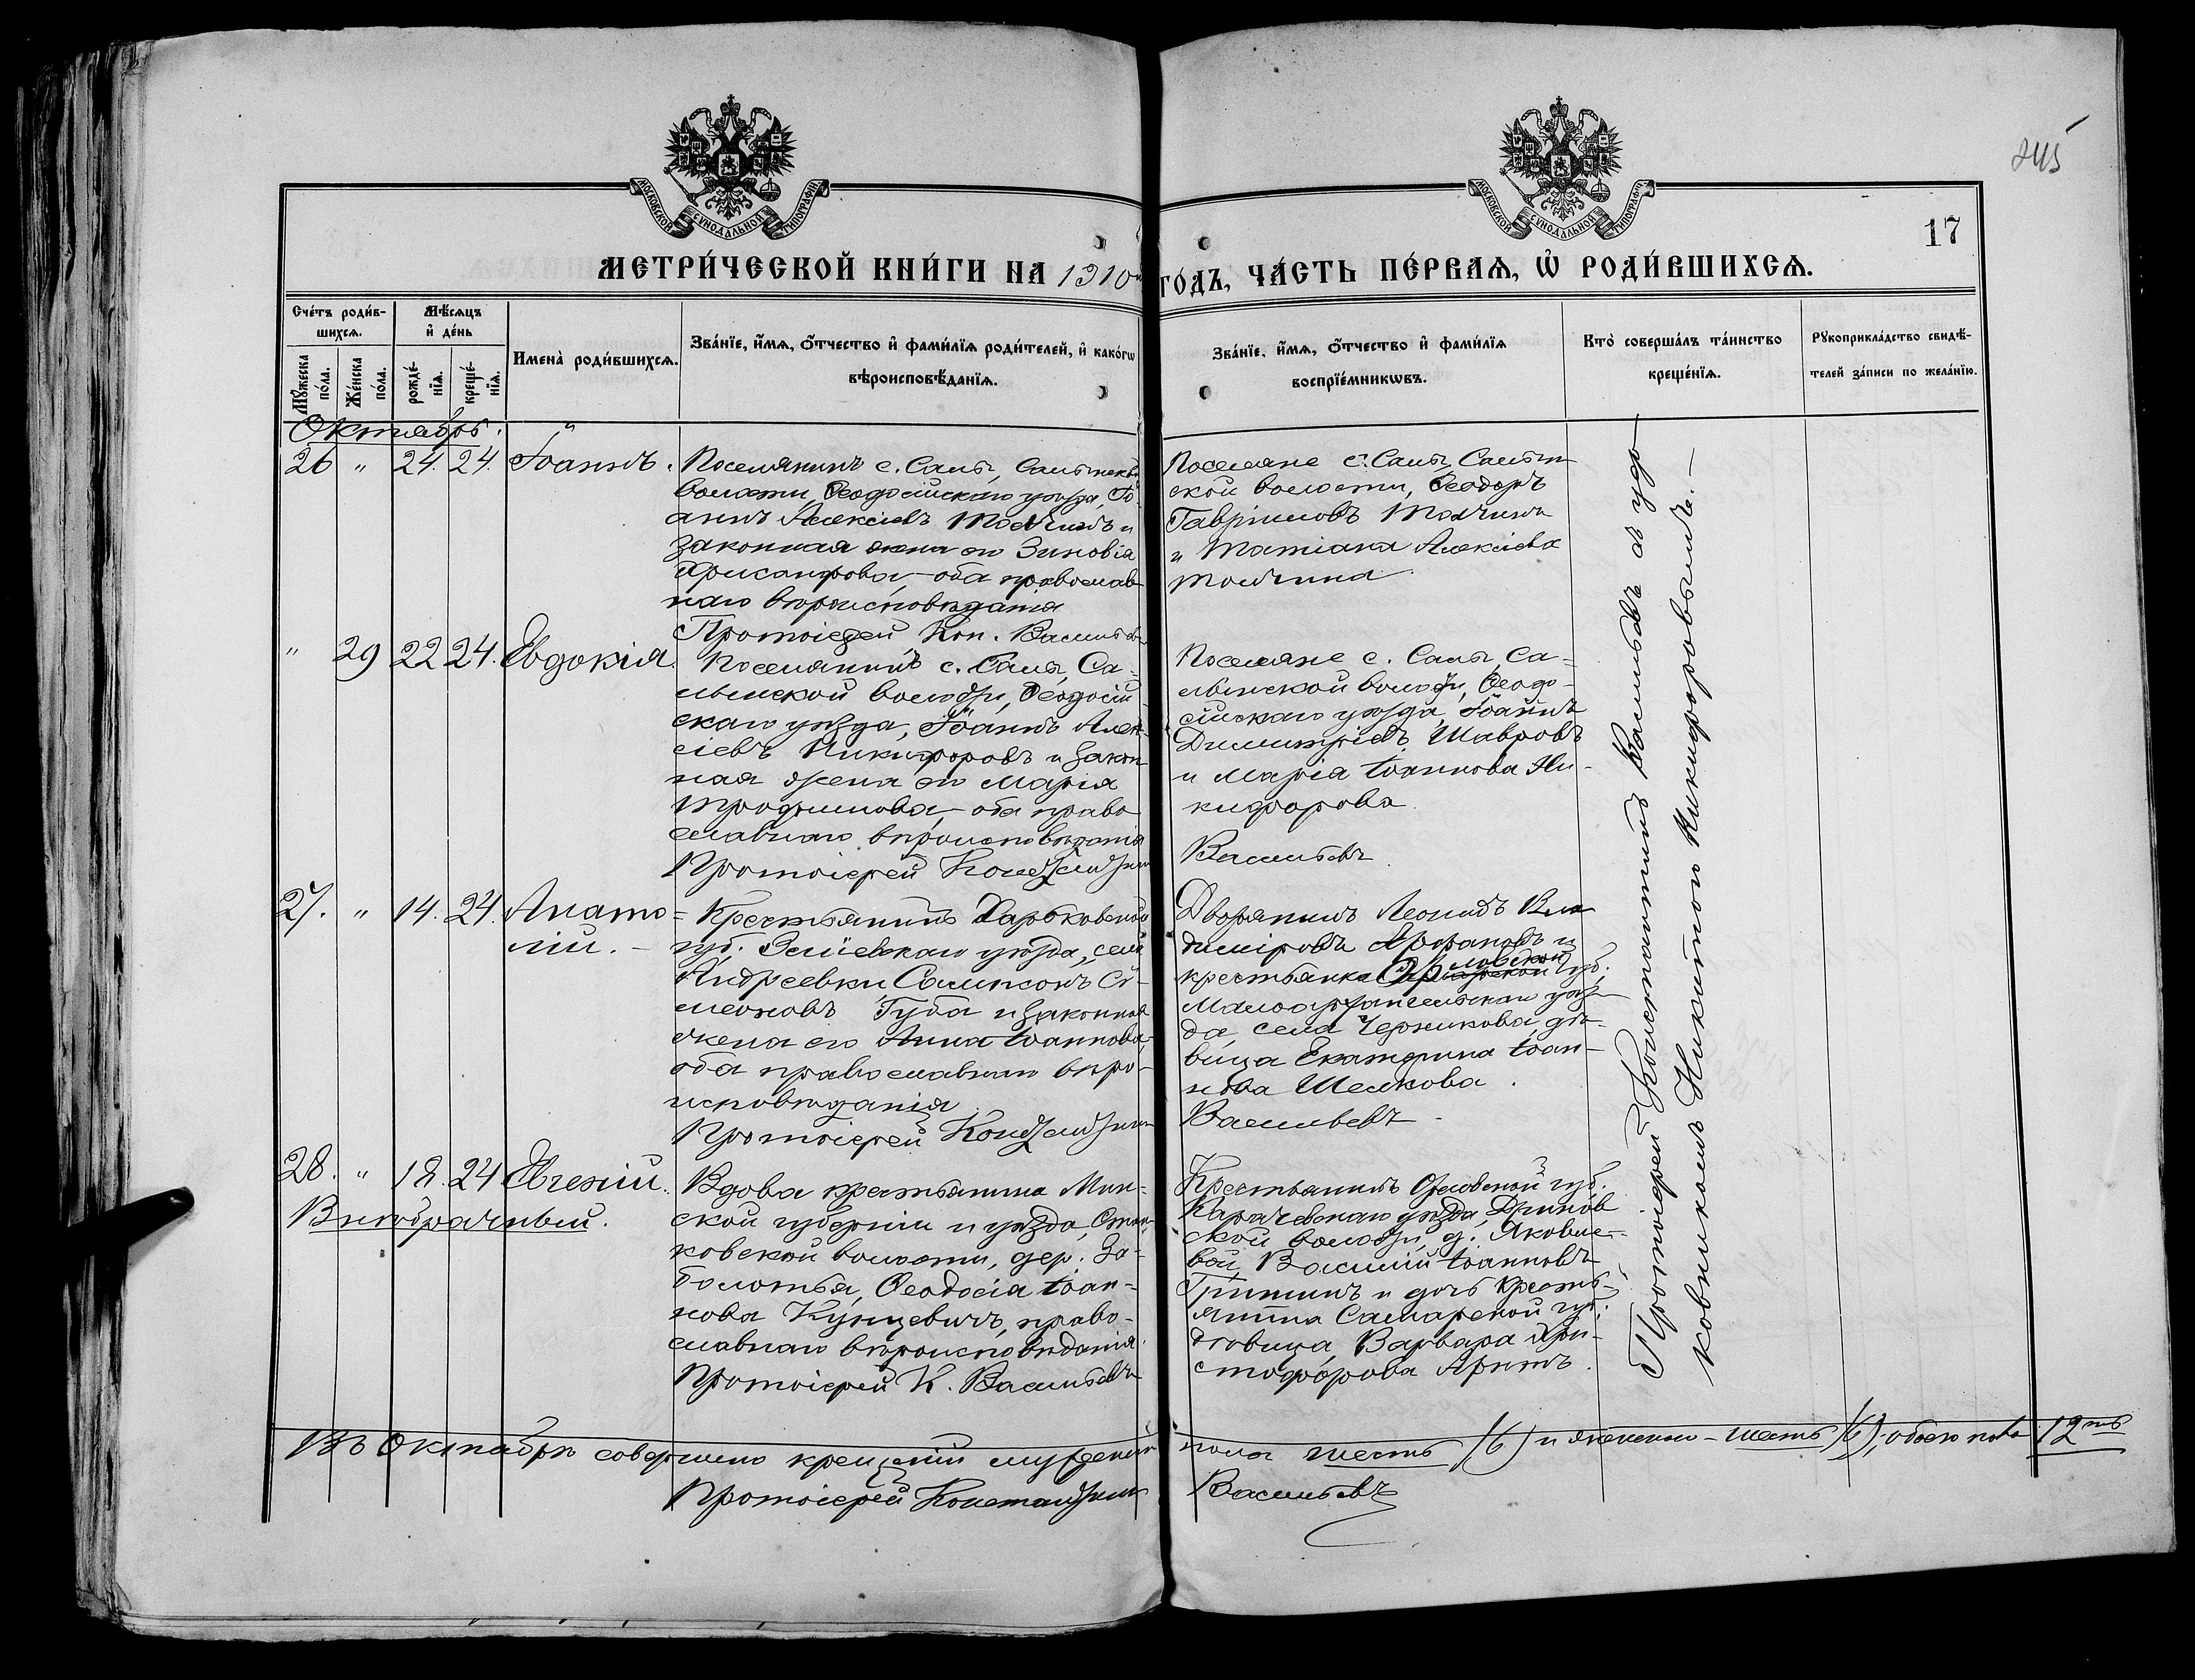 845
17
МОСКОВСКОЙ СѴНОДАЛЬНОЙ ТИПОГРАФІИ
МОСКОВСКОЙ СѴНОДАЛЬНОЙ ТИПОГРАФІИ
МЕТРИ́ЧЕСКОЙ КНИ́ГИ НА 1910й ГО́ДЪ, ЧА́СТЬ ПЕ́РВАѦ, Ѡ РОДИ́ВШИХСѦ.
Сче́тъ роди́в-
шихсѧ.
Мꙋ́жеска по́ла.
Же́нска по́ла.
Мѣ́сѧцъ
и҆ де́нь
рожде́-
нїѧ.
креще́-
нїѧ.
Имена̀ роди́вшихсѧ.
Зва́нїе, и҆́мѧ, ѻ҆́тчество и҆ фами́лїѧ роди́телей, и҆ како́гѡ
вѣроисповѣ́данїѧ.
Зва́нїе, и҆́мѧ, ѻ҆́тчество и҆ фами́лїѧ
воспрїе́мникѡвъ.
Кто̀ соверша́лъ та́инство
креще́нїѧ.
Рꙋкоприкла́дство свидѣ́-
телей за́писи по жела́нїю.
Октябрь.
26 " 24. 24. Іоаннъ.
Поселянинъ с. Салы, Салынской
волости, Ѳеодосійскаго уѣзда, Іо-
аннъ Алексіевъ Толчинъ и
законная жена его Зиновія
Александрова, оба православ
наго вѣроисповѣданія
Протоіерей Кон. Васильевъ
Поселяне с. Салы, Салын
ской волости, Ѳеодоръ
Гавріиловъ Толчинъ
и Татіана Алексіева
Толчина
" 29 22 24. Евдокія.
Поселянинъ с. Салы, Са-
лынской волости, Ѳеодосій-
скаго уѣзда, Іоаннъ Алек-
сіевъ Никифоровъ и закон-
ная жена его Марія
Трофимова, оба право
славнаго вѣроисповѣданія
Протоіерей Константинъ
Поселяне с. Салы, Са-
лынской волости, Ѳеодо-
сійскаго уѣзда, Іоаннъ
Димитріевъ Шавровъ
и Марія Іоаннова Ни-
кифорова
Васильевъ
27. " 14. 24. Анато-
лій. –
Крестьянинъ Харьковской
губ. Зміевскаго уѣзда, села
Андреевки Сампсонъ Сѵ-
меоновъ Губа и законная
жена его Анна Іоаннова,
оба православнаго вѣро-
исповѣданія
Протоіерей Константинъ
Дворянинъ Леонидъ Вла
диміровъ и
крестьянка губ.
Малоархангельскаго уѣз-
да, села Черникова, дѣ-
вица Екатерина Іоан-
нова Шелкова.
Васильевъ
28. " 18. 24 Евгеній.
Внѣбрачный.
Вдова крестьянина Мин-
ской губерніи и уѣзда, Стань-
ковской волости, дер. За-
болотья, Ѳеодосія Іоан-
нова Кунцевичъ, право-
славнаго вѣроисповѣданія.
Протоіерей К. Васильевъ
Крестьянинъ Орловской губ.
Карачевскаго уѣзда,
ской волости, д. Яковле-
вой, Василій Іоанновъ
Гришинъ и дочь кресть-
янина Самарской губ.
дѣвица, Варвара Хри-
стофорова
Протоіерей Константинъ Васильевъ съ
ковникомъ Никитою Никифоровымъ. –
Въ Октябрѣ совершено крещеній мужескаго пола шесть (6) и женскаго – шесть (6), обоего пола 12ть
Протоіерей Константинъ Васильевъ